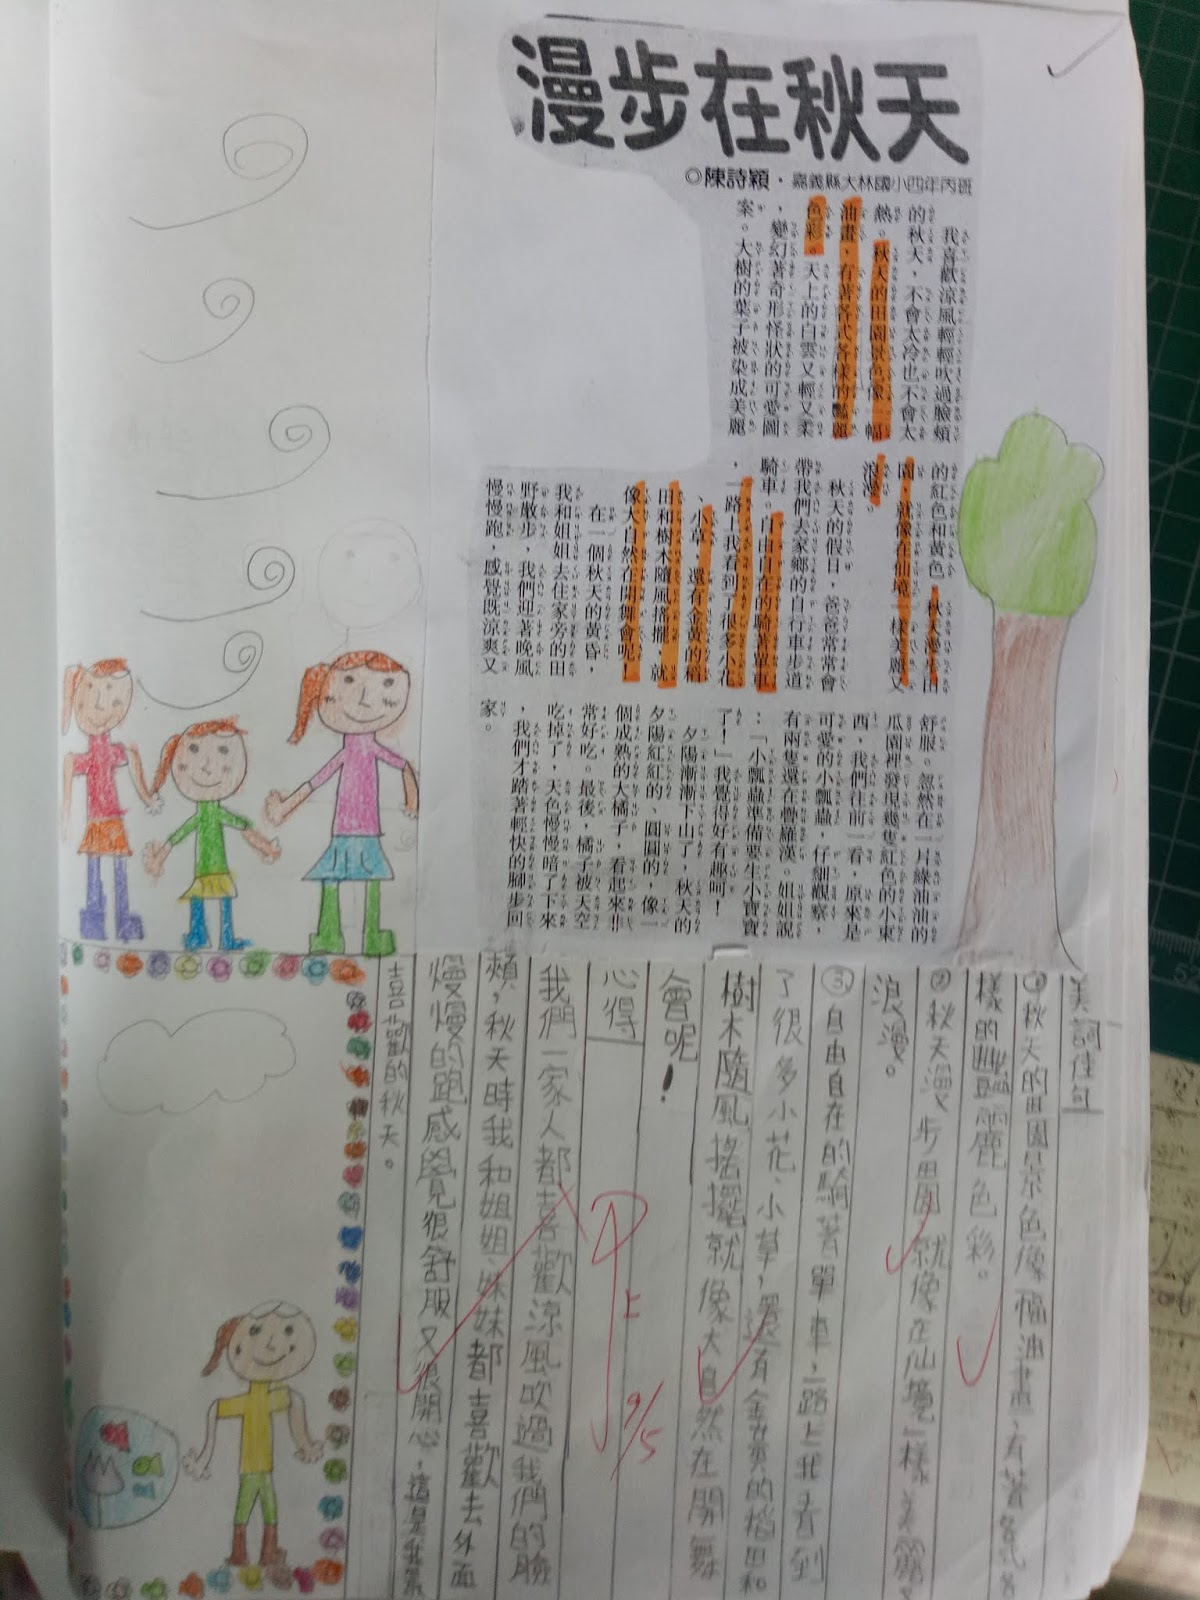 漫步在秋天
◎陳詩穎．嘉義縣大林國小四年丙班
我喜歡涼風輕輕吹過臉頰
的秋天，不會太冷也不會太
熱。秋天的田園景色像一幅
油畫，有著各式各樣的豔麗
色彩。天上的白雲又輕又柔
，變幻著奇形怪狀的可愛圖
案。大樹的葉子被染成美麗
的紅色和黃色，秋天漫步田
園，就像在仙境一樣美麗又
浪漫。
秋天的假日，爸爸常常會
帶我們去家鄉的自行車步道
騎車。自由自在的騎著單車
，一路上我看到了很多小花
、小草，還有金黃的稻
田和樹木隨風搖擺，就
像大自然在開舞會呢！
在一個秋天的黃昏，
我和姐姐去住家旁的田
野散步，我們迎著晚風
慢慢跑，感覺既涼爽又
舒服。忽然在一片綠油油的
瓜園裡發現幾隻紅色的小東
西，我們往前一看，原來是
可愛的小瓢蟲，仔細觀察，
有兩隻還在疊羅漢。姐姐說
：「小瓢蟲準備要生小寶寶
了！」我覺得好有趣呵！
夕陽漸漸下山了，秋天的
夕陽紅紅的、圓圓的，像一
個成熟的大橘子，看起來非
常好吃。最後，橘子被天空
吃掉了，天色慢慢暗了下來
，我們才踏著輕快的腳步回
家。
美詞佳句
①秋天的田園景色像一幅油畫，有著各式各
樣的豔麗色彩。
②秋天漫步田園，就像在仙境一樣美麗又
浪漫。
③自由自在的騎著單車，一路上我看到
了很多小花、小草，還有金黃的稻田和
樹木隨風搖擺就像大自然在開舞
會呢！
心得
我們一家人都喜歡涼風吹過我們的臉
頰，秋天時我和姐姐、妹妹都喜歡去外面
慢慢的跑感覺很舒服又很開心，這是我最
喜歡的秋天。
甲上
9/5